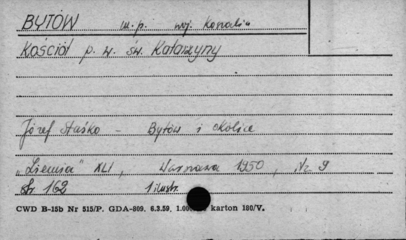 BYTÓW m.p. woj. Koszalin
Kościół p. w. św. Katarzyny
Józef Staśko - Bytów i okolice
"Ziemia" XLI, Warszawa 1950, Nr 9
Str 162 1 ilustr.
CWD B-15b Nr 515/P. GDA-809. 6.3.59. 1.00 karton 180/V.